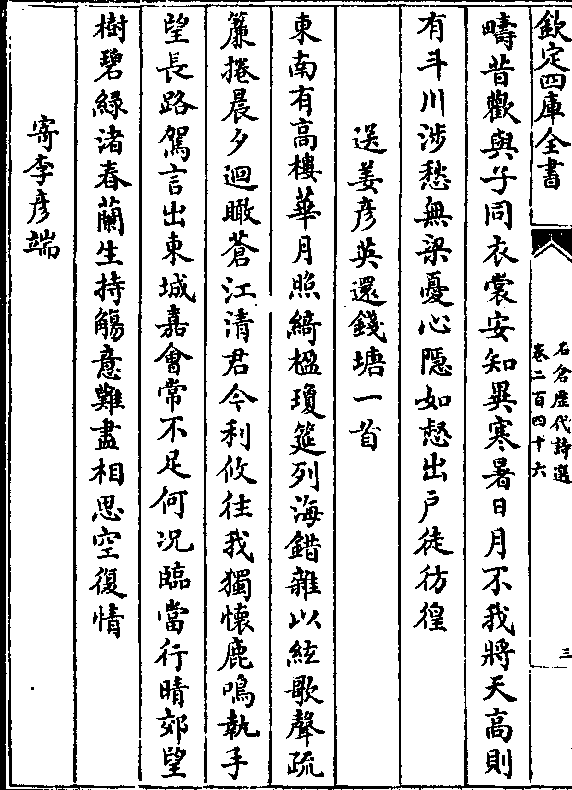 欽定四庫全書
石倉歴代詩選
卷二百四十六
三
疇昔歡與子同衣裳安知異寒暑日月不我將天高則
有斗川涉愁無梁憂心隠如惄出戶徒彷徨
送姜彦英還錢塘一首
東南有高樓華月照綺楹瓊筵列海錯雜以絃歌聲疏
簾捲晨夕迴瞰蒼江清君今利攸往我獨懷鹿鳴執手
望長路駕言出東城嘉會常不足何况臨當行晴郊望
樹碧緑渚春蘭生持觴意難盡相思空復情
寄李彦端